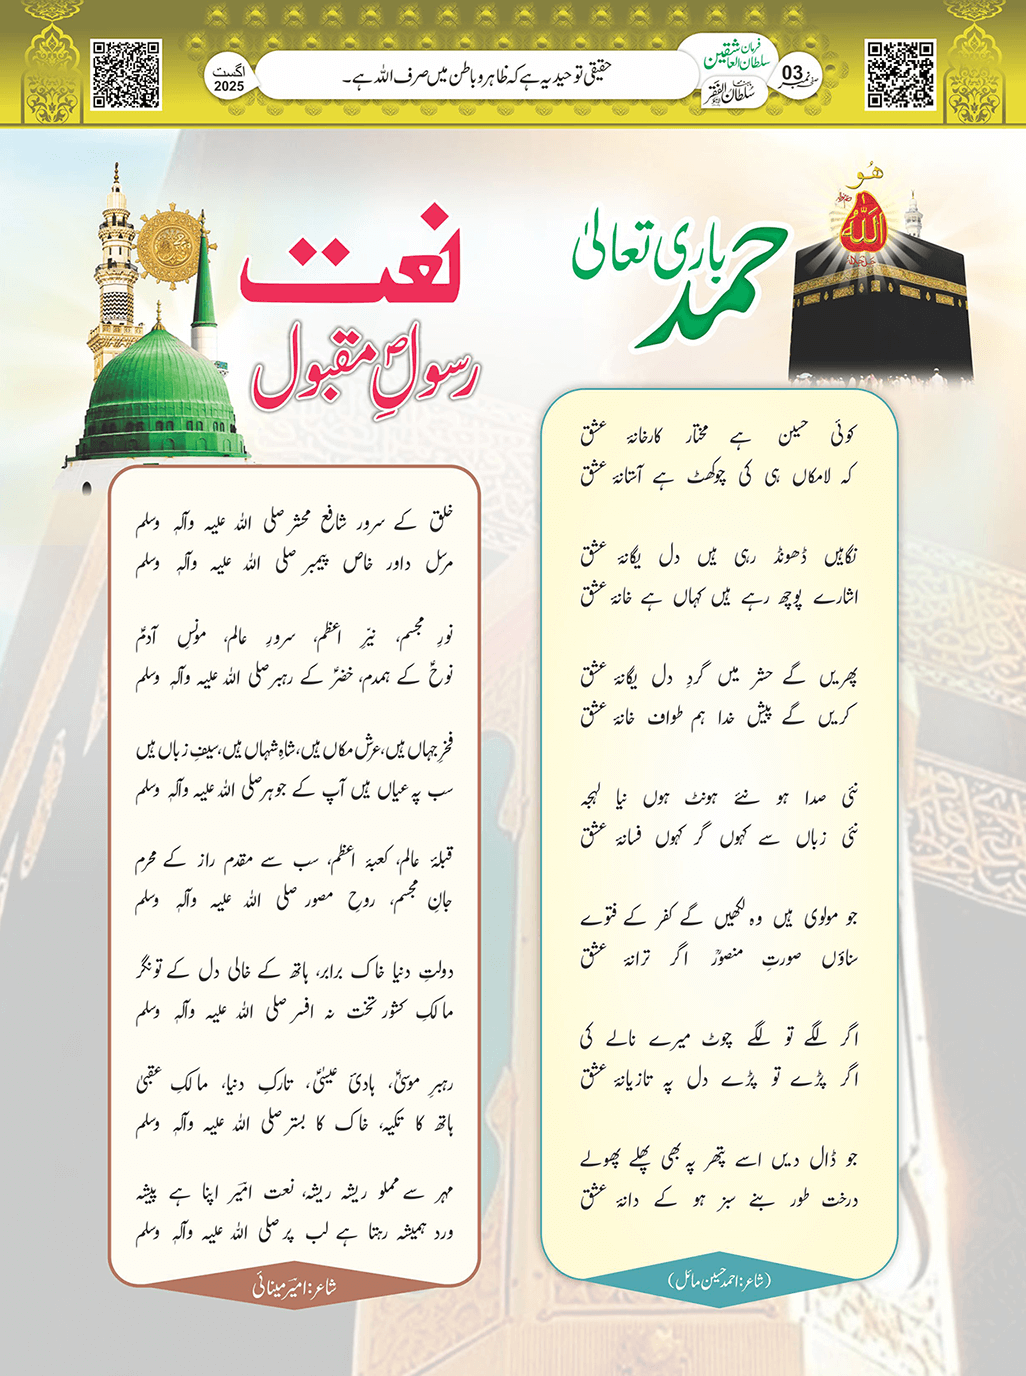 صفحہ نمبر 03
فرمان سلطان العاشقین
سلطان الفقر
حقیقی توحید یہ ہے کہ ظاہر و باطن میں صرف اللہ ہے۔
اگست
2025
ھُو
اللہ
حمد باری تعالیٰ
کوئی حسین ہے مختار کارخانۂ عشق
کہ لامکاں ہی کی چوکھٹ ہے آستانۂ عشق
نگاہیں ڈھونڈ رہی ہیں دل یگانۂ عشق
اشارے پوچھ رہے ہیں کہاں ہے خانۂ عشق
پھریں گے حشر میں گردِ دل یگانۂ عشق
کریں گے پیش خدا ہم طواف خانۂ عشق
نئی صدا ہو نئے ہونٹ ہوں نیا لہجہ
نئی زباں سے کہوں گر کہوں فسانۂ عشق
جو مولوی ہیں وہ لکھیں گے کفر کے فتوے
سناؤں صورتِ منصورؒ اگر ترانۂ عشق
اگر لگے تو لگے چوٹ میرے نالے کی
اگر پڑے تو پڑے دل پہ تازیانۂ عشق
جو ڈال دیں اسے پتھر پہ بھی پھلے پھولے
درخت طور بنے سبز ہو کے دانۂ عشق
(شاعر: احمد حسین مائل)
نعت
رسولِ مقبولؐ
خلق کے سرور شافع محشر صلی اللہ علیہ وآلہٖ وسلم
مرسل داور خاص پیمبر صلی اللہ علیہ وآلہٖ وسلم
نورِ مجسم، نیّرِ اعظم، سرورِ عالم، مونسِ آدمؑ
نوحؑ کے ہمدم، خضرؑ کے رہبر صلی اللہ علیہ وآلہٖ وسلم
فخرِ جہاں ہیں، عرش مکاں ہیں، شاہِ شہاں ہیں، سیفِ زباں ہیں
سب پہ عیاں ہیں آپ کے جوہر صلی اللہ علیہ وآلہٖ وسلم
قبلۂ عالم، کعبۂ اعظم، سب سے مقدم راز کے محرم
جانِ مجسم، روحِ مصور صلی اللہ علیہ وآلہٖ وسلم
دولتِ دنیا خاک برابر، ہاتھ کے خالی دل کے تونگر
مالکِ کشور تخت نہ افسر صلی اللہ علیہ وآلہٖ وسلم
رہبرِ موسیٰؑ، ہادیٔ عیسیٰؑ، تارکِ دنیا، مالکِ عقبیٰ
ہاتھ کا تکیہ، خاک کا بستر صلی اللہ علیہ وآلہٖ وسلم
مہر سے مملو ریشہ ریشہ، نعت امیرؔ اپنا ہے پیشہ
ورد ہمیشہ رہتا ہے لب پر صلی اللہ علیہ وآلہٖ وسلم
شاعر: امیرؔ مینائی